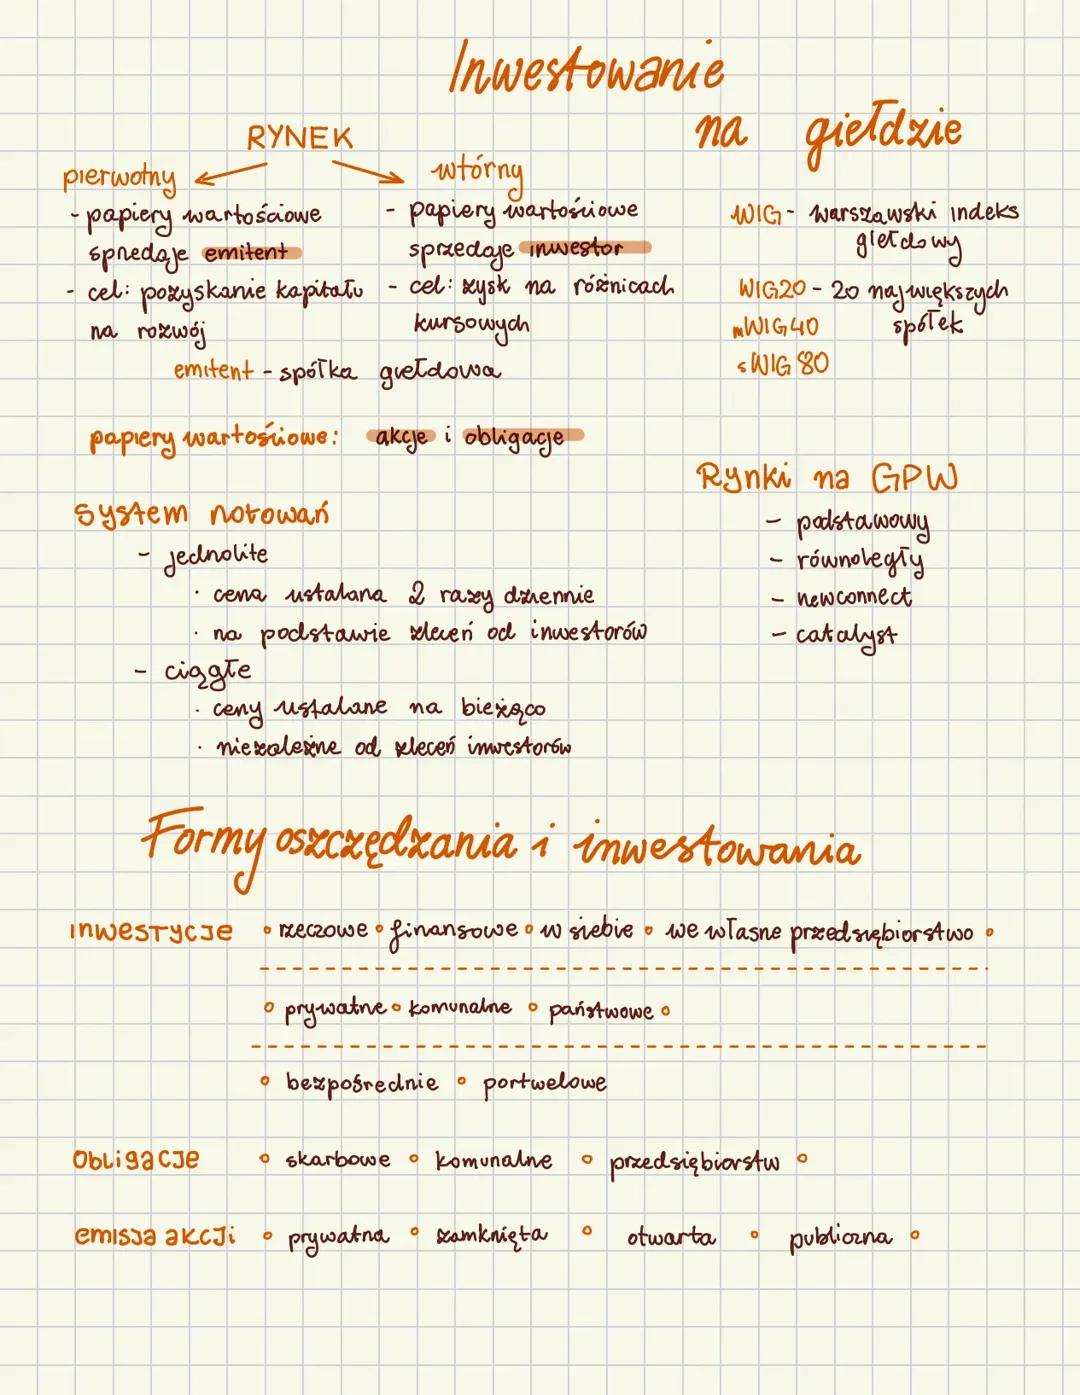 Inwestowanie
na giełdzie
RYNEK
pierwotny
- papiery wartościowe
sprzedaje emitent
- cel: pozyskanie kapitału
na rozwój
wtórny
- papiery wartościowe
sprzedaje inwestor
- cel: zysk na różnicach
kursowych
emitent - spółka giełdowa
WIG - warszawski indeks
giełdowy
WIG20 - 20 największych
spółek
mWIG40
sWIG80
papiery wartościowe: akcje i obligacje
System notowań
- jednolite
· cena ustalana 2 razy dziennie
· na podstawie zleceń od inwestorów
- ciągłe
· ceny ustalane na bieżąco
· niezależne od zleceń inwestorów
Rynki na GPW
- podstawowy
- równoległy
- newconnect
- catalyst
Formy oszczędzania i inwestowania
inwestycje ∘ rzeczowe ∘ finansowe ∘ w siebie ∘ we własne przedsiębiorstwo ∘
∘ prywatne ∘ komunalne ∘ państwowe ∘
∘ bezpośrednie ∘ portwelowe
obligacje ∘ skarbowe ∘ komunalne ∘ przedsiębiorstw ∘
emisja akcji ∘ prywatna ∘ zamknięta ∘ otwarta ∘ publiczna ∘